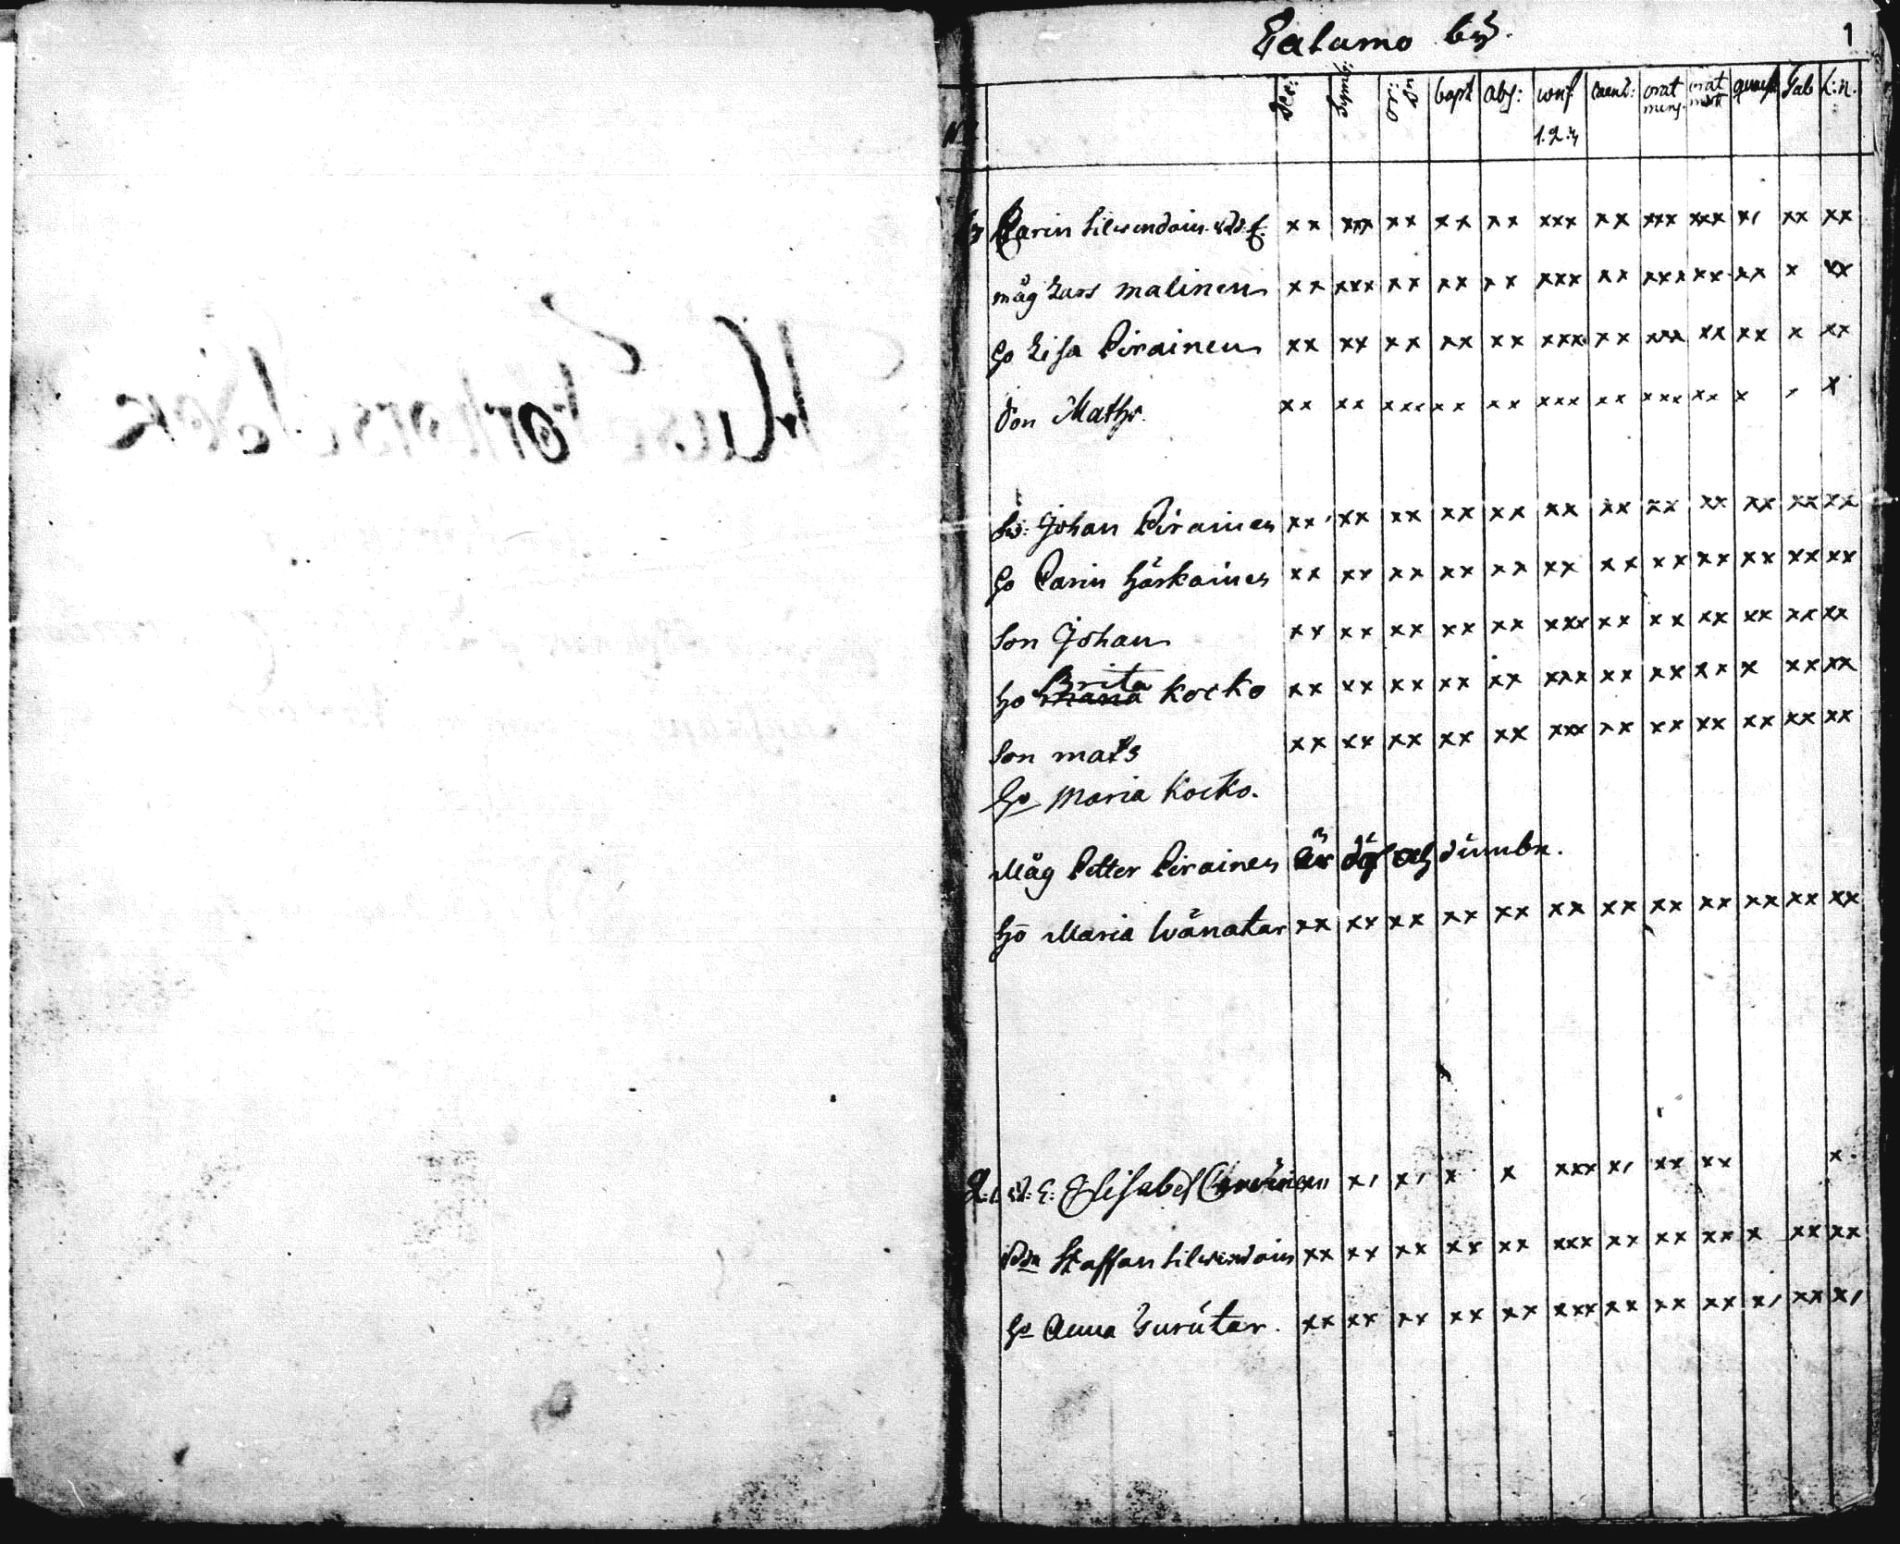 Husförhörs Bok
Palamo by. 1
No Dec: Symb: orat: D: bapt abs: conf caend: orat mens. orat mat quaest Tab L:n.
1.2.4
Carin Silwendoin
xx xxx xx xx xx xxx xx xxx xxx x, xx xx
måg Lars malinen xx xxx xx xx xx xxx xx xxx xx xx x xx
ho Lisa Pirainen xx xx xx xx xx xxx xx xxx xx xx x xx
son Maths. xx xx xxx xx xx xxx xx xxx xx x , x
Johan Pirainen xx xx xx xx xx xx xx xx xx xx xx xx
ho Carin Häskainen xx xx xx xx xx xx xx xx xx xx xx xx
son Johan xx xx xx xx xx xxx xx xx xx xx xx xx
ho Brita Kocko xx xx xx xx xx xxx xx xx xx x xx xx
son mats xx xx xx xx xx xxx xx xx xx xx xx xx
ho Maria Kocko.
Måg Petter Pirainen är döf och dumbe.
ho Maria Wänatar xx xx xx xx xx xx xx xx xx xx xx xx
2. Elisabet x, x, x x xxx x, xx xx x
Staffan Silwendoin xx xx xx xx xx xxx xx xx xx x xx xx
ho Anna Surutar. xx xx xx xx xx xxx xx xx xx x, xx x,